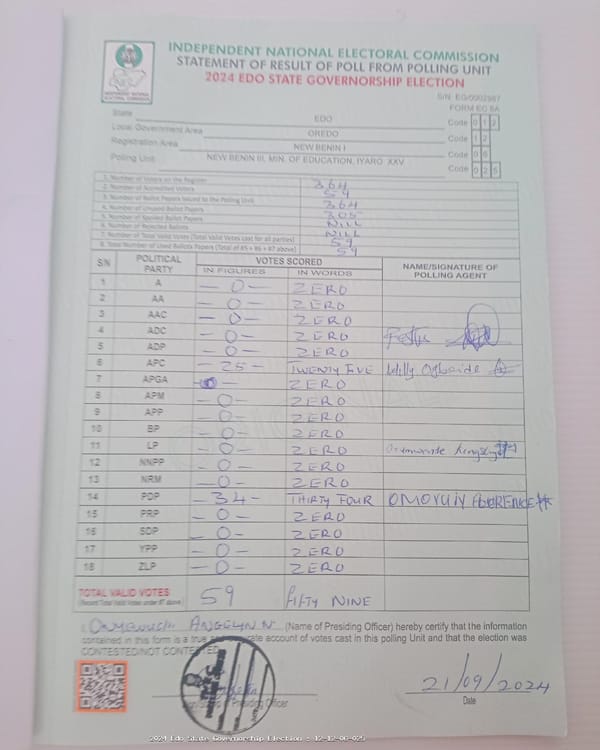 INDEPENDENT NATIONAL ELECTORAL COMMISSION
STATEMENT OF RESULT OF POLL FROM POLLING UNIT
2024 EDO STATE GOVERNORSHIP ELECTION
S/N: EG/0002987
FORM EC 8A
State EDO Code 0 1 2
Local Government Area OREDO Code 1 2
Registration Area NEW BENIN I Code 0 6
Polling Unit NEW BENIN III, MIN. OF EDUCATION, IYARO XXV Code 0 2 5
1. Number of Voters on the Register 364
2. Number of Accredited Voters 59
3. Number of Ballot Papers Issued to the Polling Unit 364
4. Number of Unused Ballot Papers 305
5. Number of Spoiled Ballot Papers NILL
6. Number of Rejected Ballots NILL
7. Number of Total Valid Votes (Total Valid Votes cast for all parties) 59
8. Total Number of Used Ballots Papers (Total of #5 + #6 + #7 above) 59
S/N POLITICAL PARTY VOTES SCORED NAME/SIGNATURE OF POLLING AGENT
IN FIGURES IN WORDS
1 A - 0 - ZERO
2 AA - 0 - ZERO
3 AAC - 0 - ZERO
4 ADC - 0 - ZERO Festus
5 ADP - 0 - ZERO
6 APC - 25 - TWENTY FIVE Willy Ogbeide
7 APGA - 0 - ZERO
8 APM - 0 - ZERO
9 APP - 0 - ZERO
10 BP - 0 - ZERO
11 LP - 0 - ZERO
12 NNPP - 0 - ZERO
13 NRM - 0 - ZERO
14 PDP - 34 - THIRTY FOUR FLORENCE
15 PRP - 0 - ZERO
16 SDP - 0 - ZERO
17 YPP - 0 - ZERO
18 ZLP - 0 - ZERO
TOTAL VALID VOTES 59 FIFTY NINE
(Record Total Valid Votes under #7 above)
I, ANGELYN N (Name of Presiding Officer) hereby certify that the information
contained in this form is a true and accurate account of votes cast in this polling Unit and that the election was
CONTESTED/NOT CONTESTED.
21/09/2024
Presiding Officer Date
2024 Edo State Governorship Election : 12-12-06-025